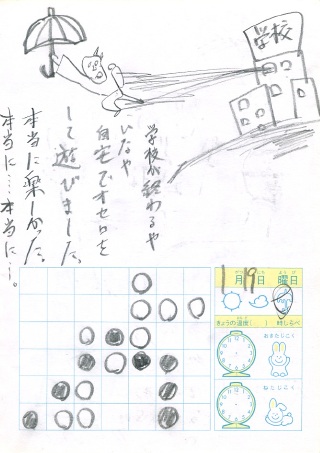 学校
学校が終わるや
いなや
自宅でオセロを
して遊びました。
本当に楽しかった。
本当に…本当に…。
1月19日 曜日
きょうの遠術
1 時しらべ
おきたじこく
ねたじこく